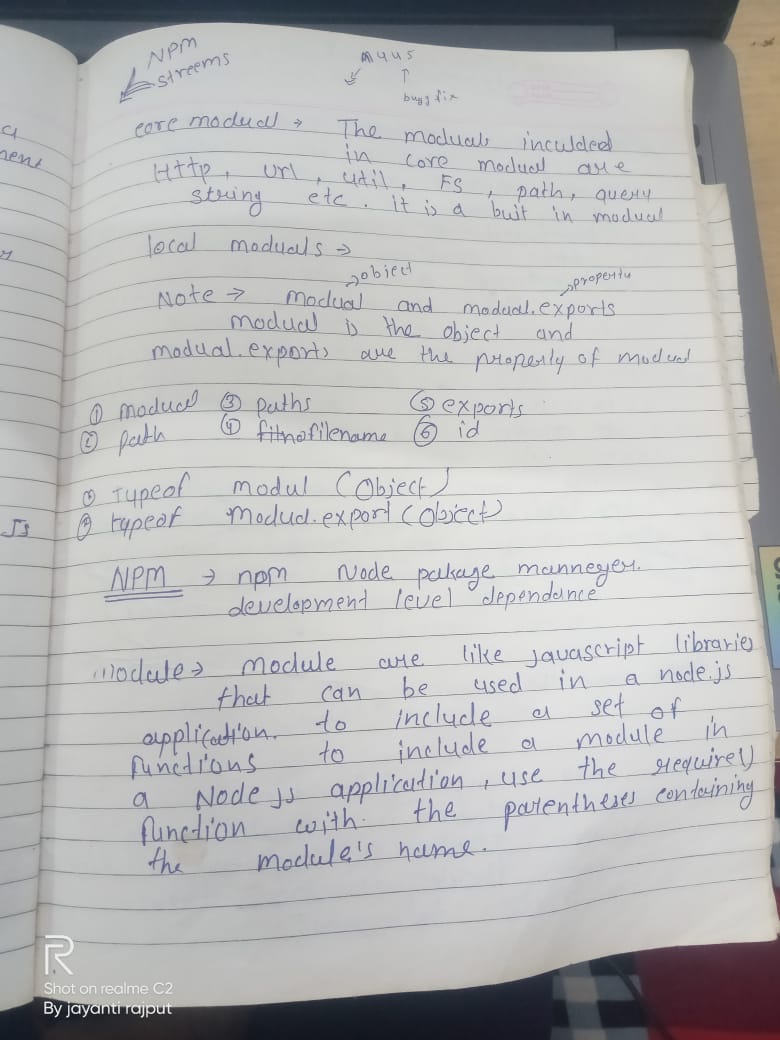 NPM
streems
buggfix
core modual → The moduals inculded
in core modual are
Http, url, util, FS, path, query
string etc. it is a buit in modual
local moduals →
→object
→property
Note → modual and modual.exports
modual is the object and
modual.exports are the property of modual
① modual ③ paths ⑤ exports
② path ④ filename ⑥ id
① Typeof modul (Object)
② typeof modud.export (Object)
NPM → npm Node pakage manneger.
development level dependance
module → module are like javascript libraries
that can be used in a node.js
application. to include a set of
functions to include a module in
a Node js application, use the require()
function with the parentheses containing
the module's name.
Js
Shot on realme C2
By jayanti rajput